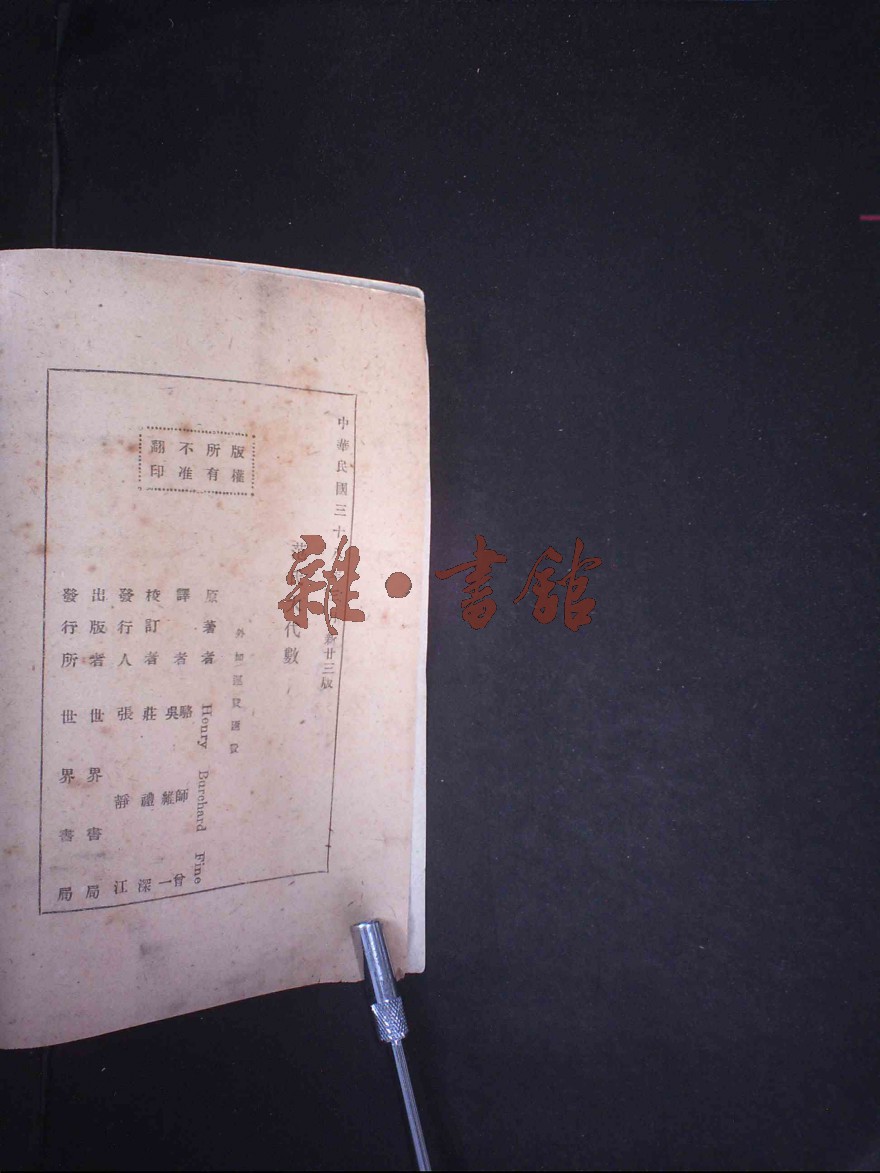 中華民國三十
新廿三版
代數
外加運費匯費
版權
所有
不准
翻印
原著者 Henry Burchard Fine
譯者 駱師曾
吳維一
校訂者 莊禮深
發行人 張靜江
出版者 世界書局
發行所 世界書局
雜·書館